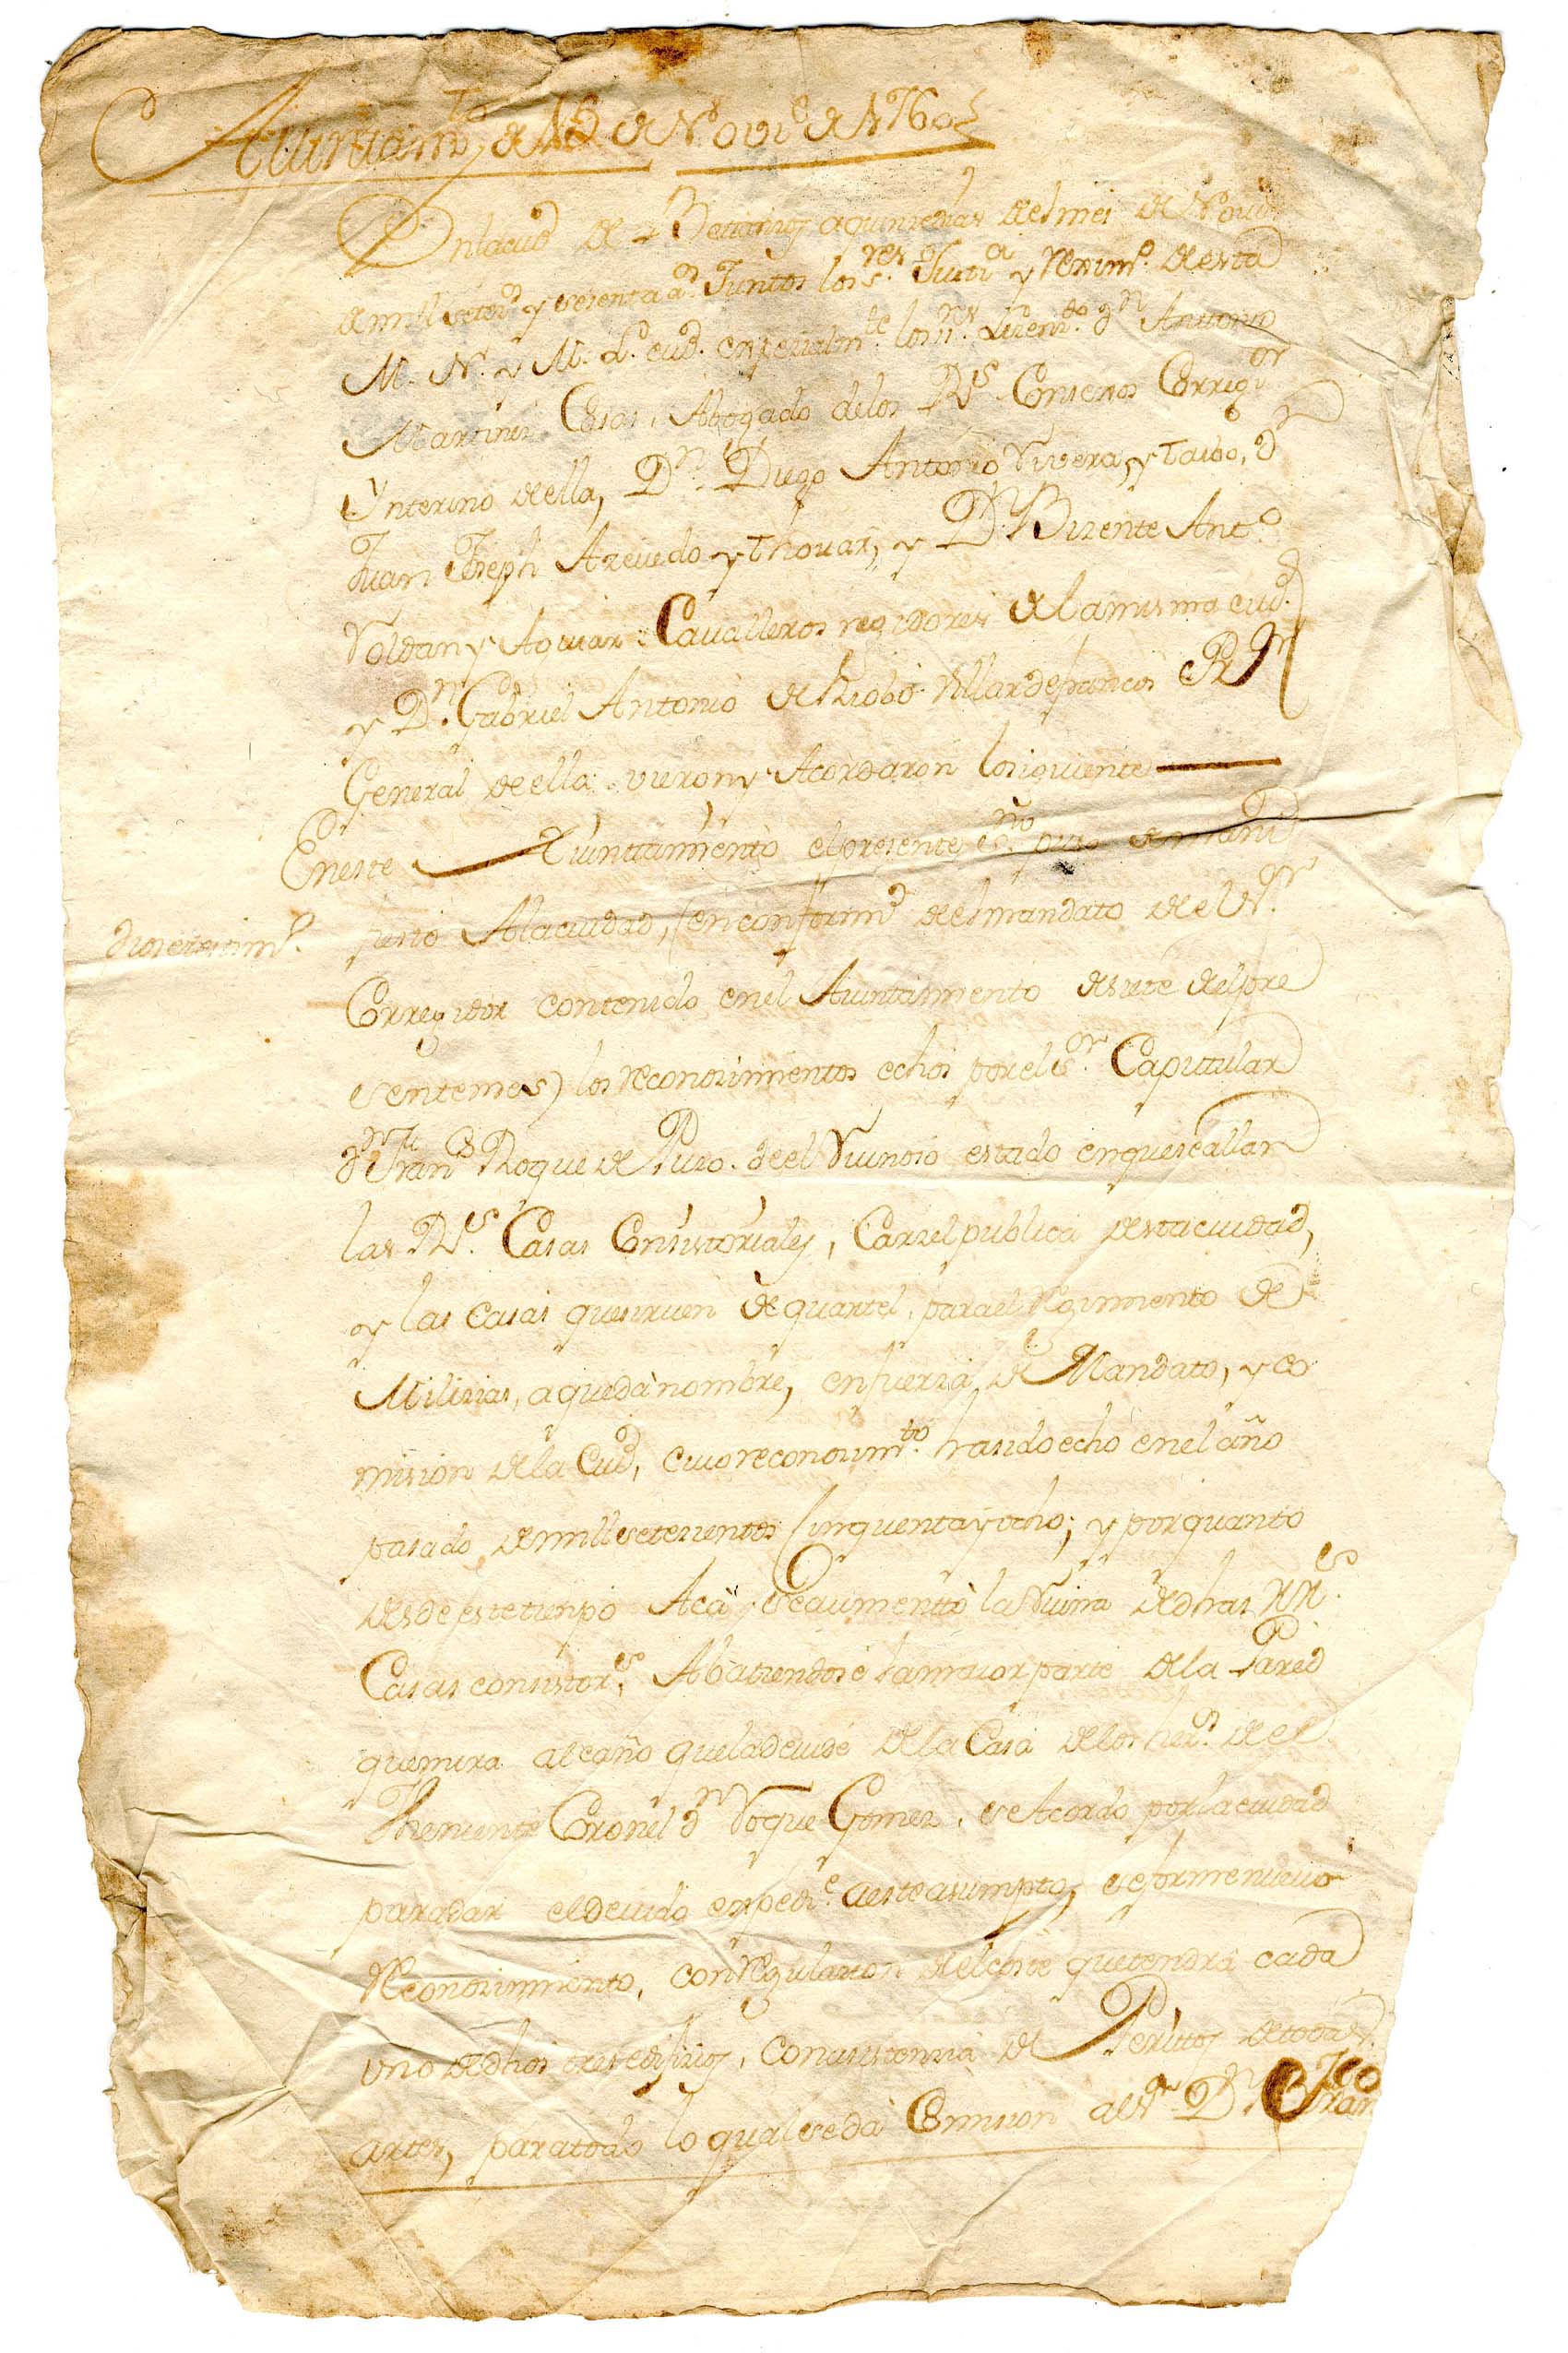 Auintam.to de 15 de Nov.e de 1760
En la ciud de Betanzos a quinze dias del mes de Nov.e
de mill setez.s y sesenta a.s Juntos los S.res Justi.a y rexim.o de esta
M. N. y M. L. ciud. expezialm.te los S.res Lizenz.do D.n Antonio
Martinez Casas, Abogado de los R.s Consexos Correg.or
Ynterino de ella, D.n Diego Antonio Rivera, y Taibo, D.n
Juan Joseph Azevedo y Thouar, y D.n Bizente Ant.o
Roldan y Aguiar Cavalleros rexidores de la misma ciud.
y D.n Gabriel Antonio de Riobo Villardefrancos P.r
General de ella vieron y Acordaron lo siguiente
En este Auintamiento el presente es.no puso de mani
fiesto A la ciudad, (en conform.d del mandato de el S.or
Corregidor contenido en el Auintamiento de siete del pre
sente mes) los reconozimientos echos por el S.or Capitular
D.n Fran.co Roque de Puzo. de el Ruinoso estado en que se allan
las R.s Casas Consistoriales, Carzel publica de esta ciudad,
y las casas que sirven de quartel, para el Regimiento de
Milizias, a que da nombre, en fuerza de Mandato, y co
mision de la Ciud, cuio reconozim.to ha sido echo en el año
pasado de mill setezientos Cinquenta y ocho; y por quanto
desde este tiempo Acá se aumentó la Ruina de dhas RR.s
Casas consistor.s Abatiendose la maior parte de la Pared
que mira al caño que la devide de la Casa de los her.s de el
Theniente Coronel D.n Roque Gomez. se Acordo por la ciudad
para dar el devido exped.e a este asumpto, se forme nuevo
Reconozimiento, con Regulazion del coste que tendrá cada
uno de dhos tres edifizios, con asistenzia de Peritos de todas
artes, para todo lo qual se da Comision al S.r D.n Fran.co